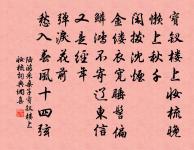 寶釵樓上妝梳晚
懶上秋千
閑撥沈煙
金縷衣寬睡髻偏
鱗鴻不寄遼東信
又是經年
彈淚花前
愁入春風十四弦
陸游采桑子寶釵樓上
妝梳晚詞典網